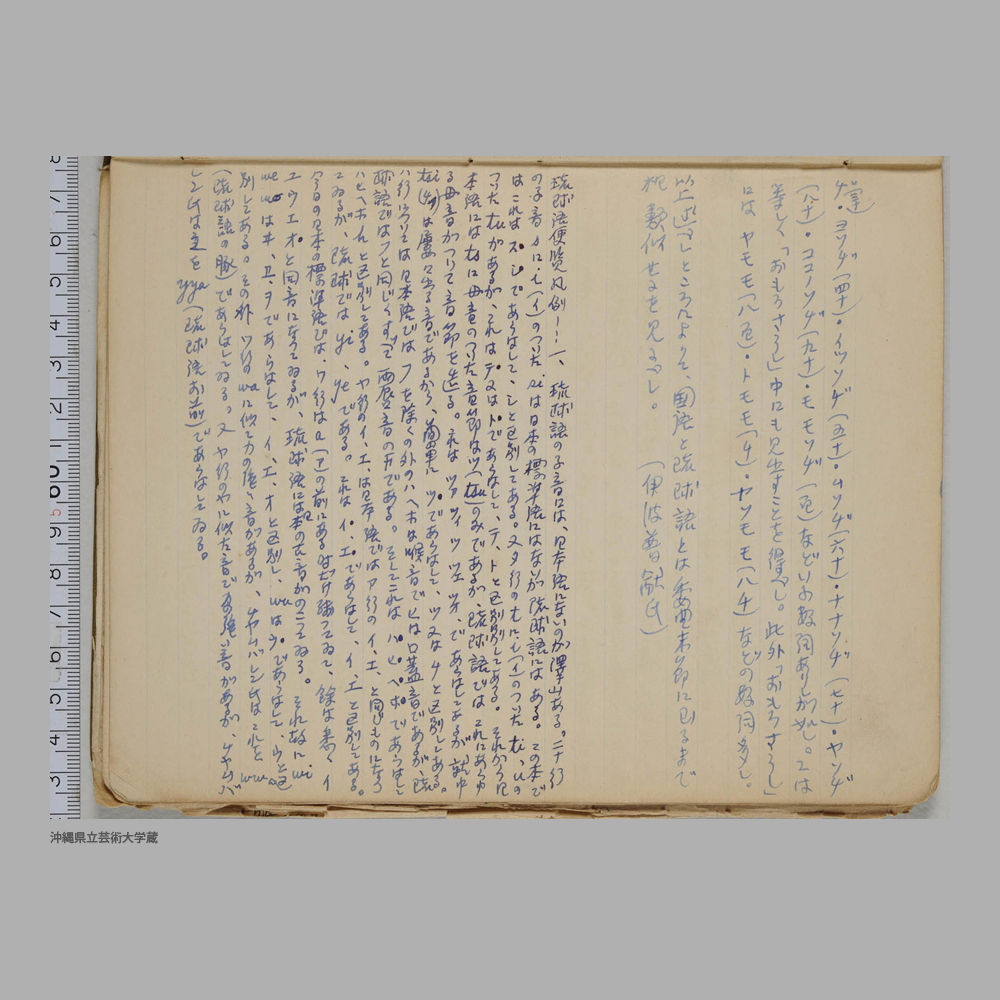 ゲ・ヨソヂ(四十)・イソヂ(五十)・ムソヂ(六十)・ナナソヂ(七十)・ヤソヂ
(八十)・ココノソヂ(九十)・モモソヂ(百)などいふ数詞あるが如し。こは
等しく「おもろさうし」中にも見出すことを得べし。此外「おもろさうし」
には ヤモモ(八百)・トモモ(千)・ヤソモモ(八千)などの数詞多し。
以上述べしところによりて、国語と琉球語とは委曲末節に至るまで
類似せるを見るべし。 (伊波普猷氏)
琉球語便覧凡例――一、琉球語の子音には、日本語にないのが澤山ある。
の子音 に、i(イ)のついた si は日本の標準語にはないが琉球語にはある。この本で
はこれは であらはして、シと区別してある。又タ行の t に、i(イ)のついた ti, u の
ついた tu があるが、これは であらはして、テ、トと区別してある。それから日
本語には ts に母音のついた音節はツ(tsu)のみであるが、琉球語ではこれにあらゆ
る母音がついて音節を造る。それは ツァ ツィ ツ ツェ ツォ、であらはしてあるが、就中
は屢々出る音であるから、簡単に であらはして、ツ又はチと区別してある。
ハ行については日本語では フ を除くの外のハ、ヘ、ホは喉音でヒは口蓋音であるが、琉
球語ではフと同じくすべて両唇音のFである。そしてこれは であらはして
ハヒヘホと区別してある。ヤ行のイ、エ、は日本語ではア行のイ、エ、と同じものになつ
てゐるが、琉球では yi, ye である。これは であらはして、イ、エと区別してある。
今日の日本の標準語では、ワ行は a(ア)の前にある wだけ残つてゐて、餘は悉くイ
ユウエオと同音になつてゐるが、琉球語には本のまゝ音がのこつてゐる。それ故に wi
we wo は ヰ、ヱ、ヲであらはして、イ、エ、オと区別し、wu は であらはして、ウと区
別してある。その外 wa に似た力の強い音があるが、チヤムバレン氏はこれを wwa
(琉球語の豚)であらはしてゐる。又 ヤ行のヤに似た音で強い音があるが、チヤムバ
レン氏は之を yya(琉球語お前)であらはしてゐる。
沖縄県立芸術大学蔵